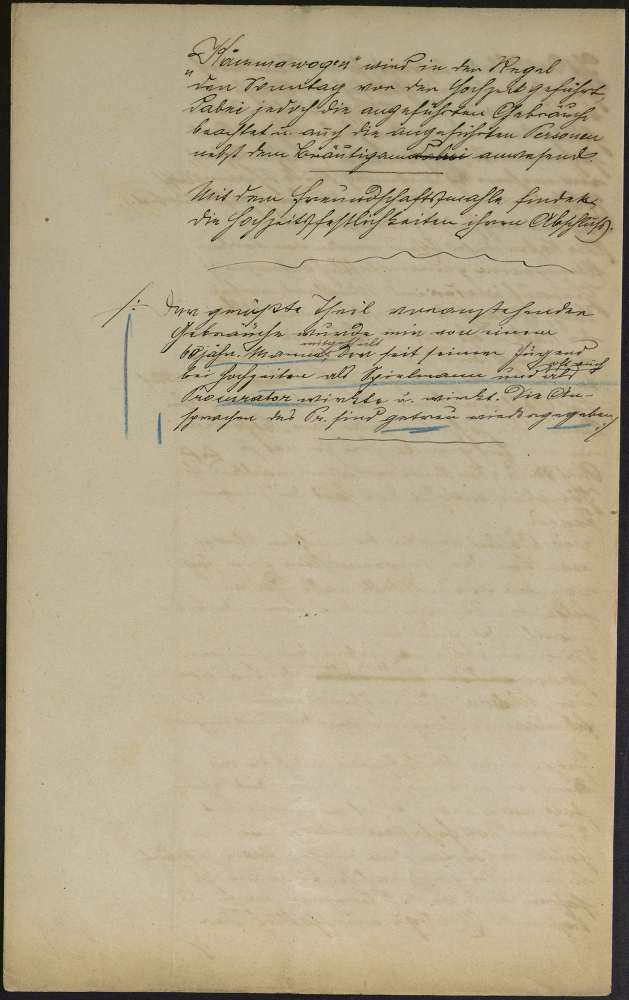 "Kammawogen" wird in der Regel
den Sonntag vor der Hochzeit geführt
dabei jedoch die angeführten Gebräuche
beachtet u. auch die angeführten Personen
nebst dem Bräutigam dabei anwesend.
Mit dem Freundschaftsmahle finden
die Hochzeitsfestlichkeiten ihren Abschluß.
/: Der größte Theil voranstehender
Gebräuche wurde mir von einem
mitgetheilt
60 jähr. Manne, der seit seiner Jugend
bei Hochzeiten als Spielmann und als
Procurator wirkte u. wirkt. Die An-
sprachen des Pr. sind getreu wiedergegeben :/